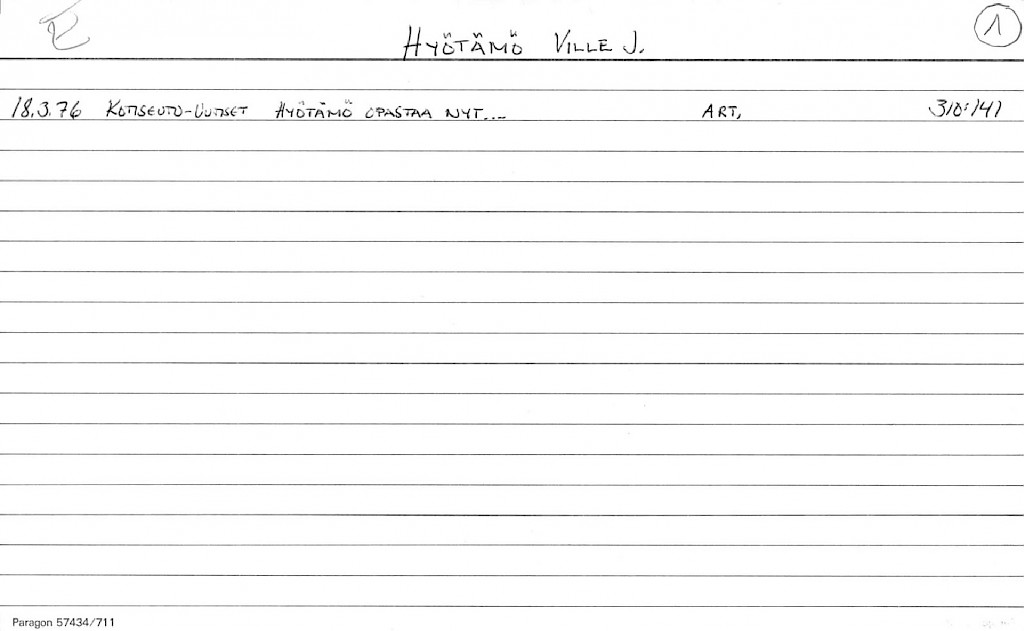 1
HYÖTÄMÖ VILLE J.
18.3.76 KOTISEUTU-UUTISET HYÖTÄMÖ OPASTAA NYT.... ART. 310:141
Paragon 57434/711